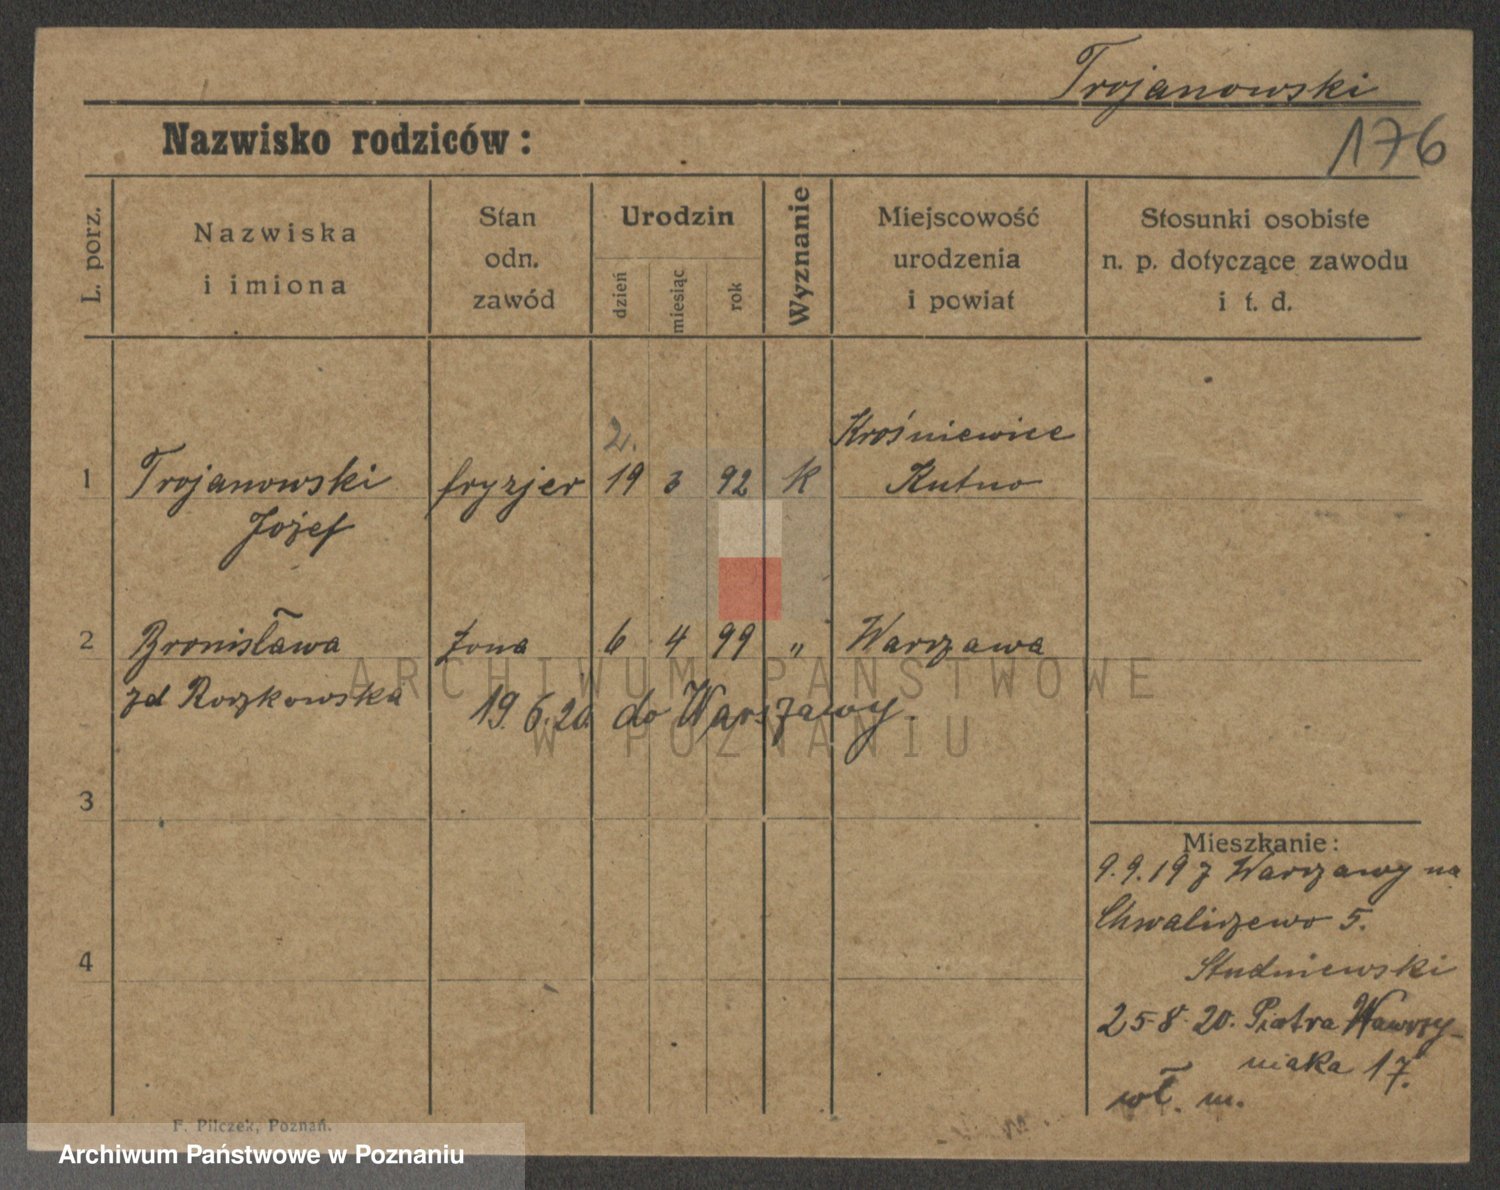 Trojanowski
176
Nazwisko rodziców:
L. porz.
Nazwiska
i imiona
Stan
odn.
zawód
Urodzin
dzień
miesiąc
rok
Wyznanie
Miejscowość
urodzenia
i powiat
Stosunki osobiste
n. p. dotyczące zawodu
i t. d.
2.
Krośniewice
1 Trojanowski fryzjer 19 3 92 k Kutno
Jozef
2 Bronisława żona 6 4 99 " Warszawa
zd Roszkowska
19.6.20. do Warszawy.
ARCHIWUM PAŃSTWOWE
W POZNANIU
3
4
Mieszkanie:
9.9.19 z Warszawy na
Chwaliszewo 5.
Studniewski
25 8 20. Piotra Wawrzy-
niaka 17.
wł. m.
F. Pilczek, Poznań.
Archiwum Państwowe w Poznaniu